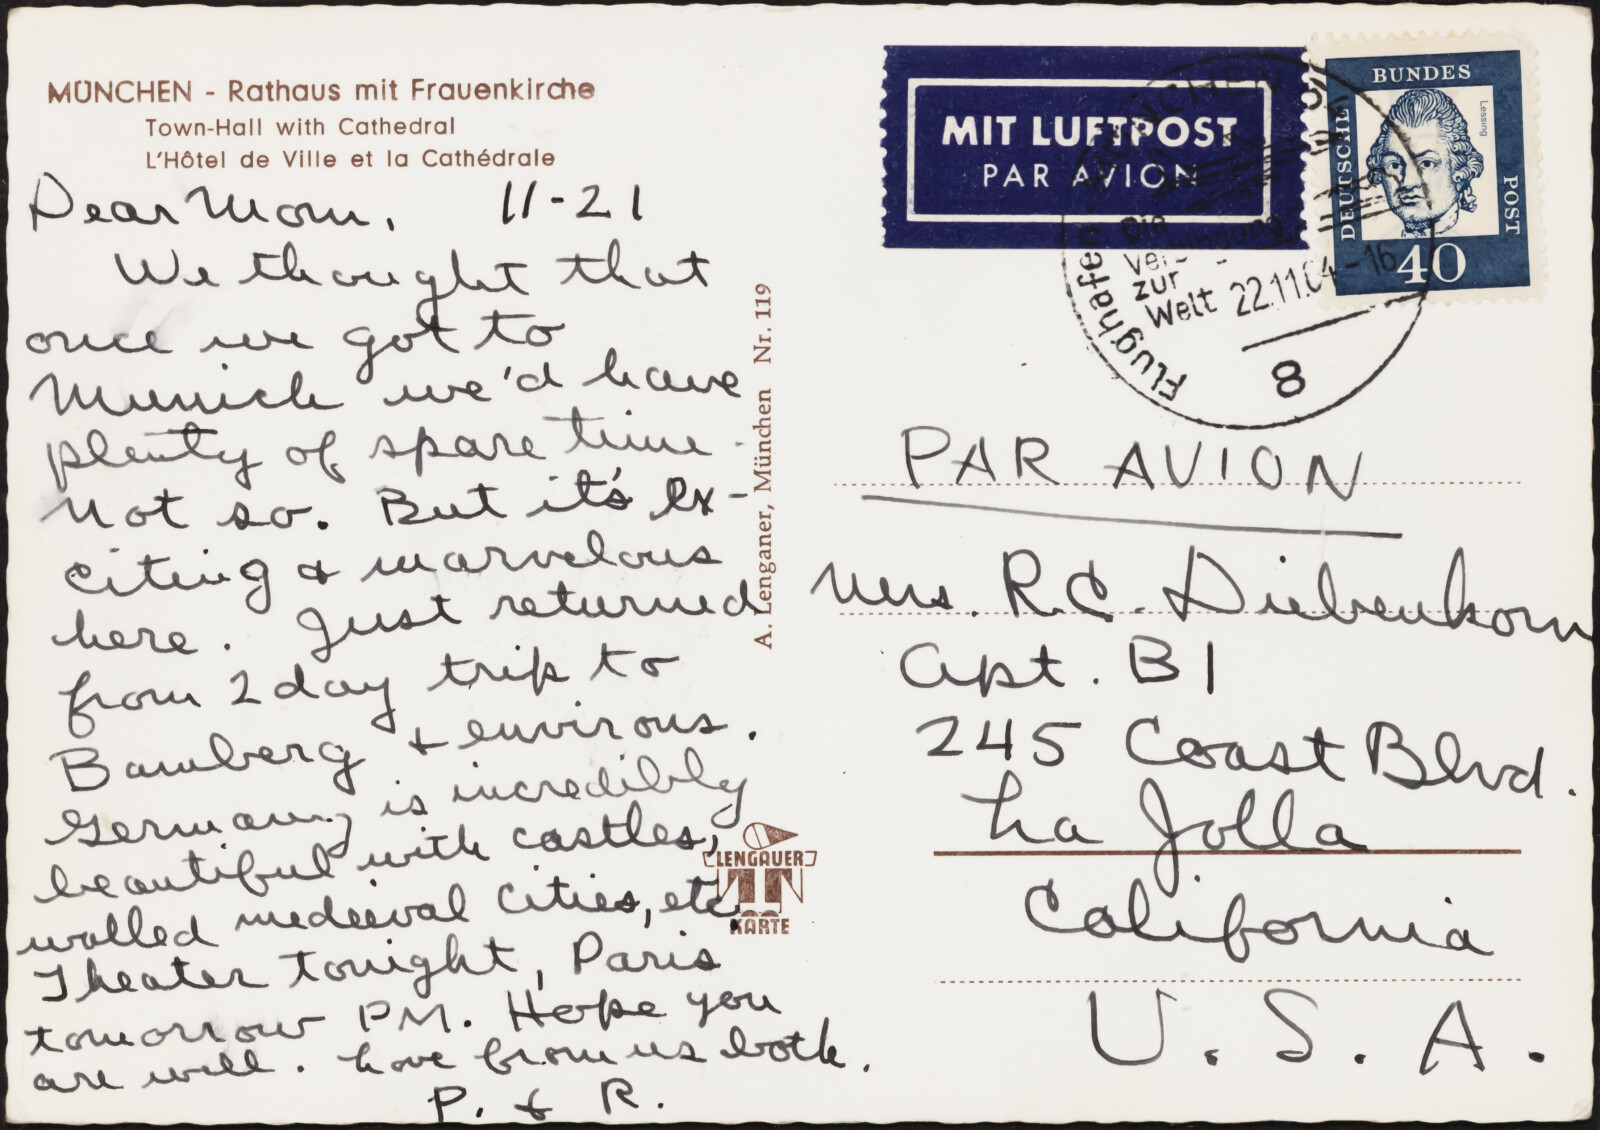 MÜNCHEN - Rathaus mit Frauenkirche
Town-Hall with Cathedral
L'Hôtel de Ville et la Cathédrale
Dear Mom, 11-21
We thought that
once we got to
Munich we'd have
plenty of spare time.
Not so. But it's ex-
citing & marvelous
here. Just returned
from 2 day trip to
Bamberg & environs.
Germany is incredibly
beautiful with castles,
walled medieval cities, etc
Theater tonight, Paris
tomorrow PM. Hope you
are well. Love from us both.
P. & R.
A. Lengauer, München Nr. 119
LENGAUER
KARTE
MIT LUFTPOST
PAR AVION
DEUTSCHE BUNDES POST
Lessing
40
Flughafen MÜNCHEN
Die
Verbindung
zur
Welt 22.11.64-16
8
PAR AVION
Mrs. R.C. Diebenkorn
Apt. B1
245 Coast Blvd.
La Jolla
California
U.S.A.